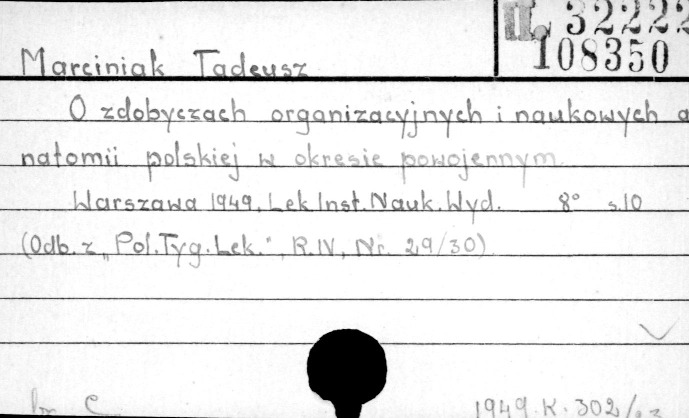 II. 32222
108350
Marciniak Tadeusz
O zdobyczach organizacyjnych i naukowych a
natomii polskiej w okresie powojennym
Warszawa 1949. Lek. Inst. Nauk. Wyd. 8° s.10
(Odb. z "Pol. Tyg. Lek.", R.IV, Nr. 29/30)
1949.K.302/